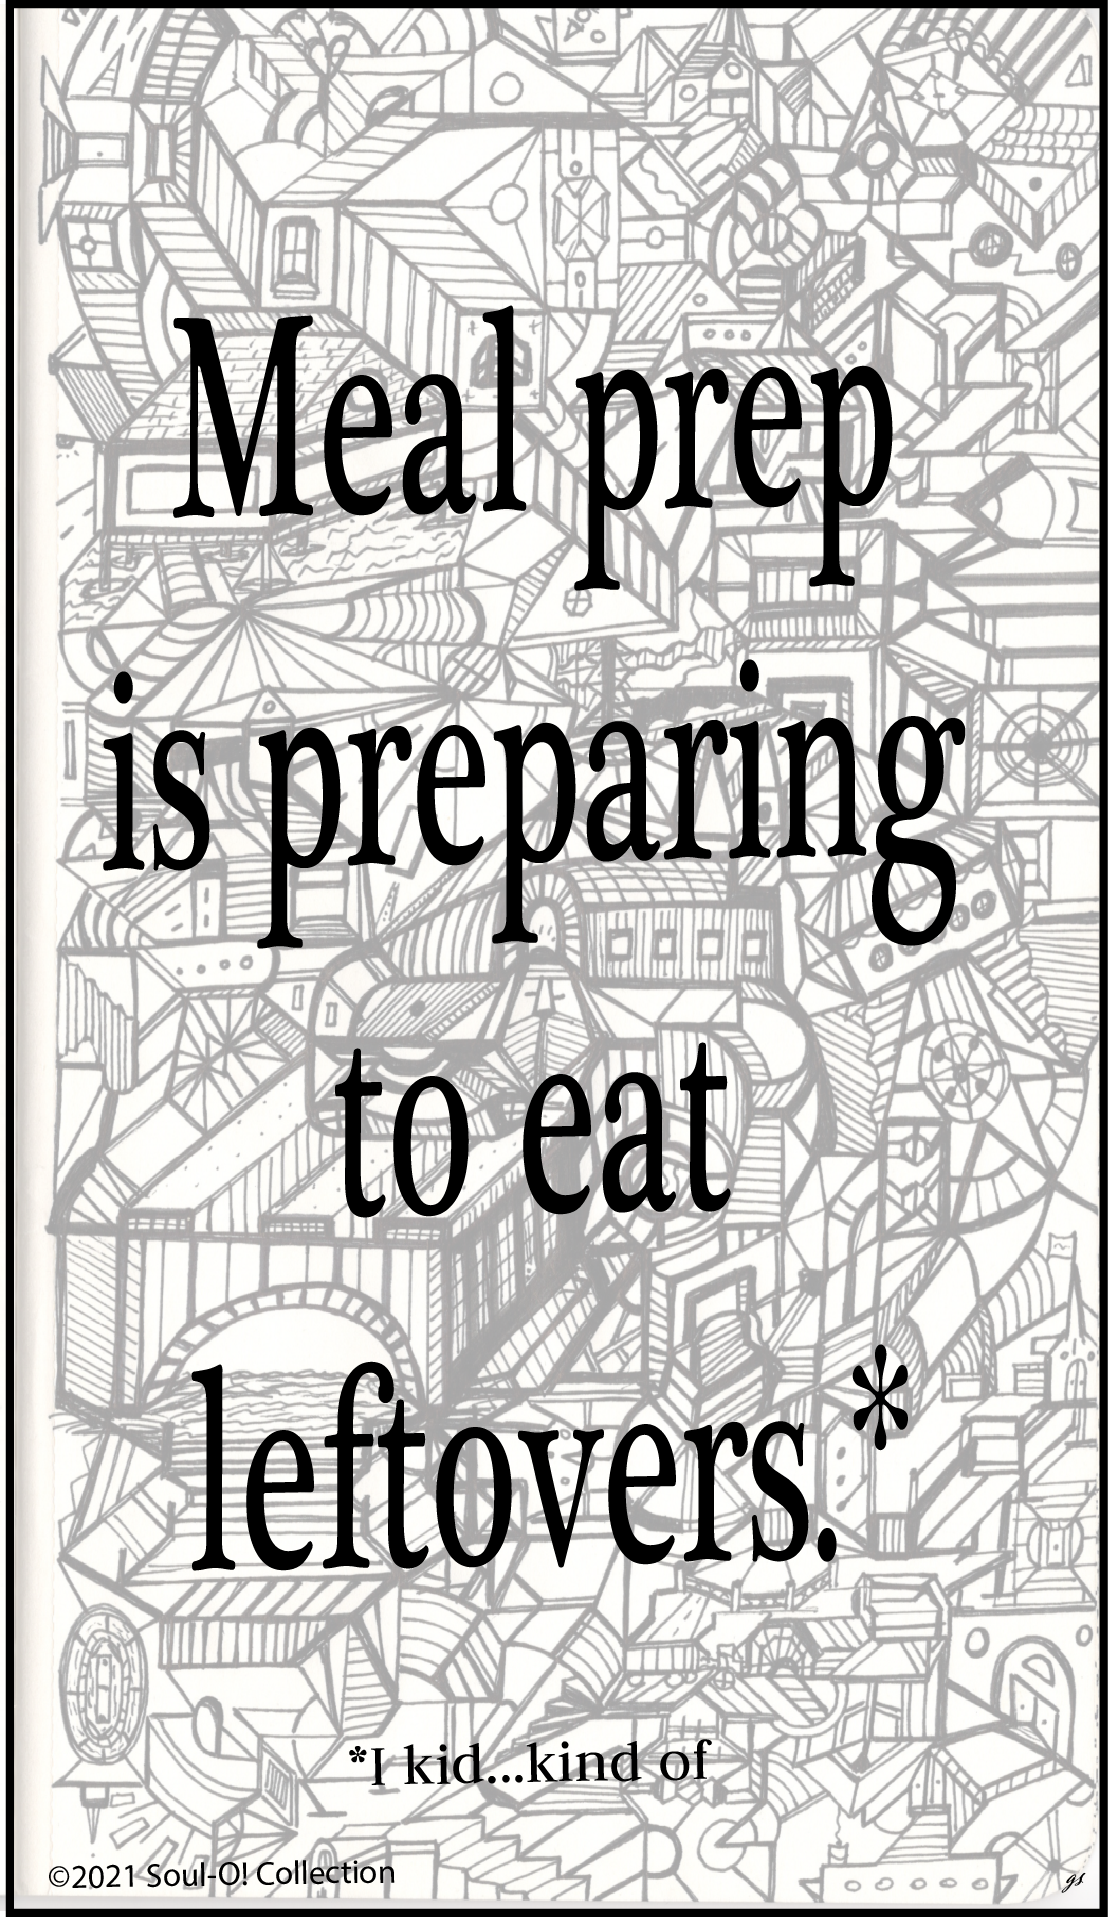 Meal prep
is preparing
to eat
leftovers.*
*I kid...kind of
©2021 Soul-O! Collection
gs